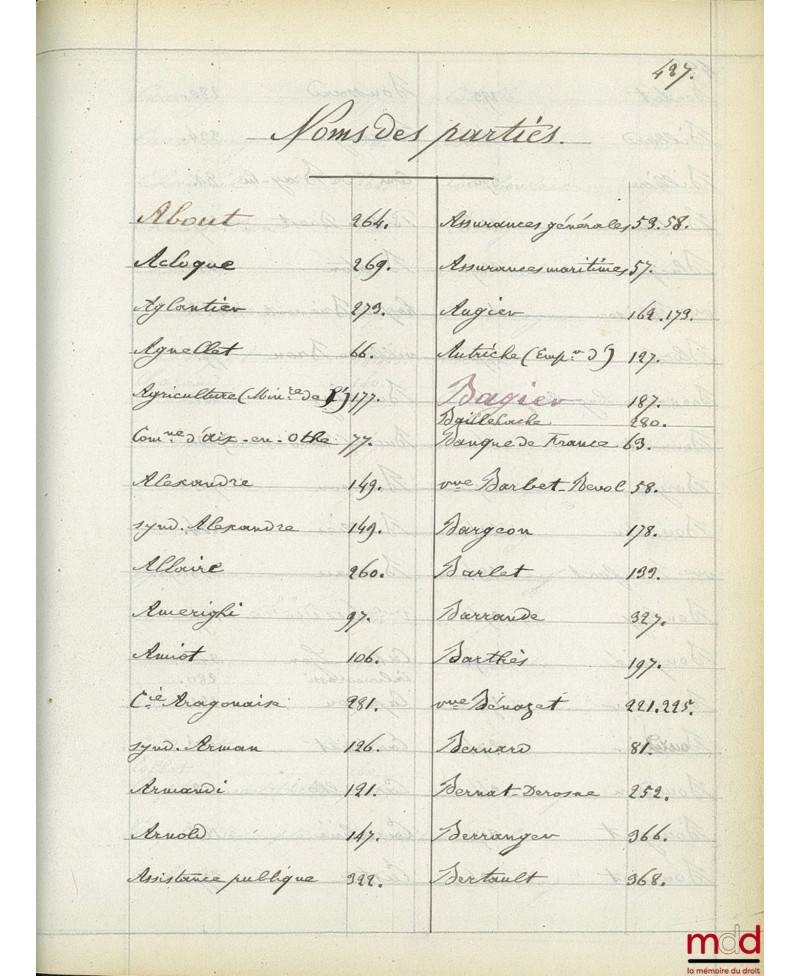 427.
Noms des parties.
About 264.
Acloque 269.
Aglantier 279.
Agnellet 66.
Agriculture (Min.re de l') 177.
Com.ne d'aix-en-Othe 77.
Alexandre 149.
synd. Alexandre 149.
Allaire 260.
Amerighi 97.
Amiot 106.
C.ie Aragonaise 281.
synd. Arman 126.
Armandi 121.
Arnold 147.
Assistance publique 322.
Assurances générales 53.58.
Assurances maritimes 57.
Augier 162.173.
Autriche (Emp.r d') 127.
Bagier 187.
Baillehache 280.
Banque de France 63.
vve Barbet-Devol 58.
Bargeon 178.
Barlet 199.
Barrande 327.
Barthès 197.
vve Bénazet 221.225.
Bernard 81.
Bernat-Derosne 252.
Berranger 366.
Bertault 368.
mdd
la mémoire du droit